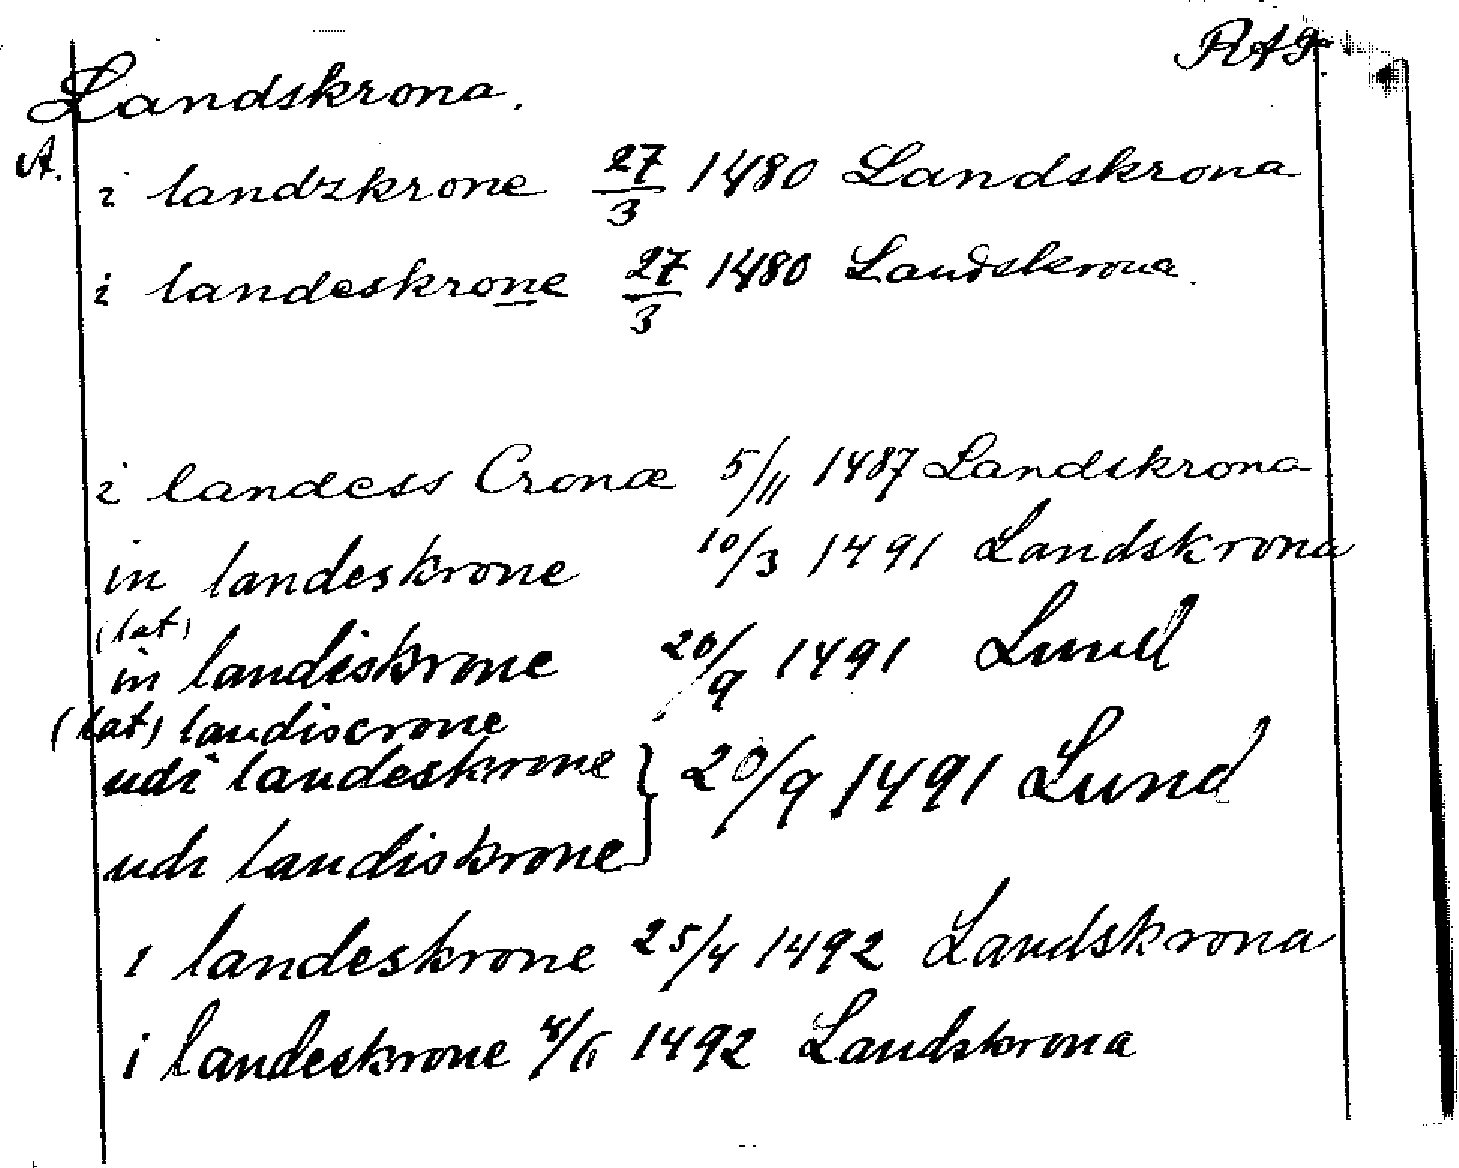 RAp.
Landskrona.
A.
i landzkrone 27/3 1480 Landskrona
i landeskrone 27/3 1480 Landskrona.
i landess Cronæ 5/11 1487 Landskrona
in landeskrone 10/3 1491 Landskrona
(lat)
in landiskrone 20/9 1491 Lund
(lat) landiscrone
udi landeskrone } 20/9 1491 Lund
udi landiskrone
i landeskrone 25/4 1492 Landskrona
i landeskrone 4/6 1492 Landskrona